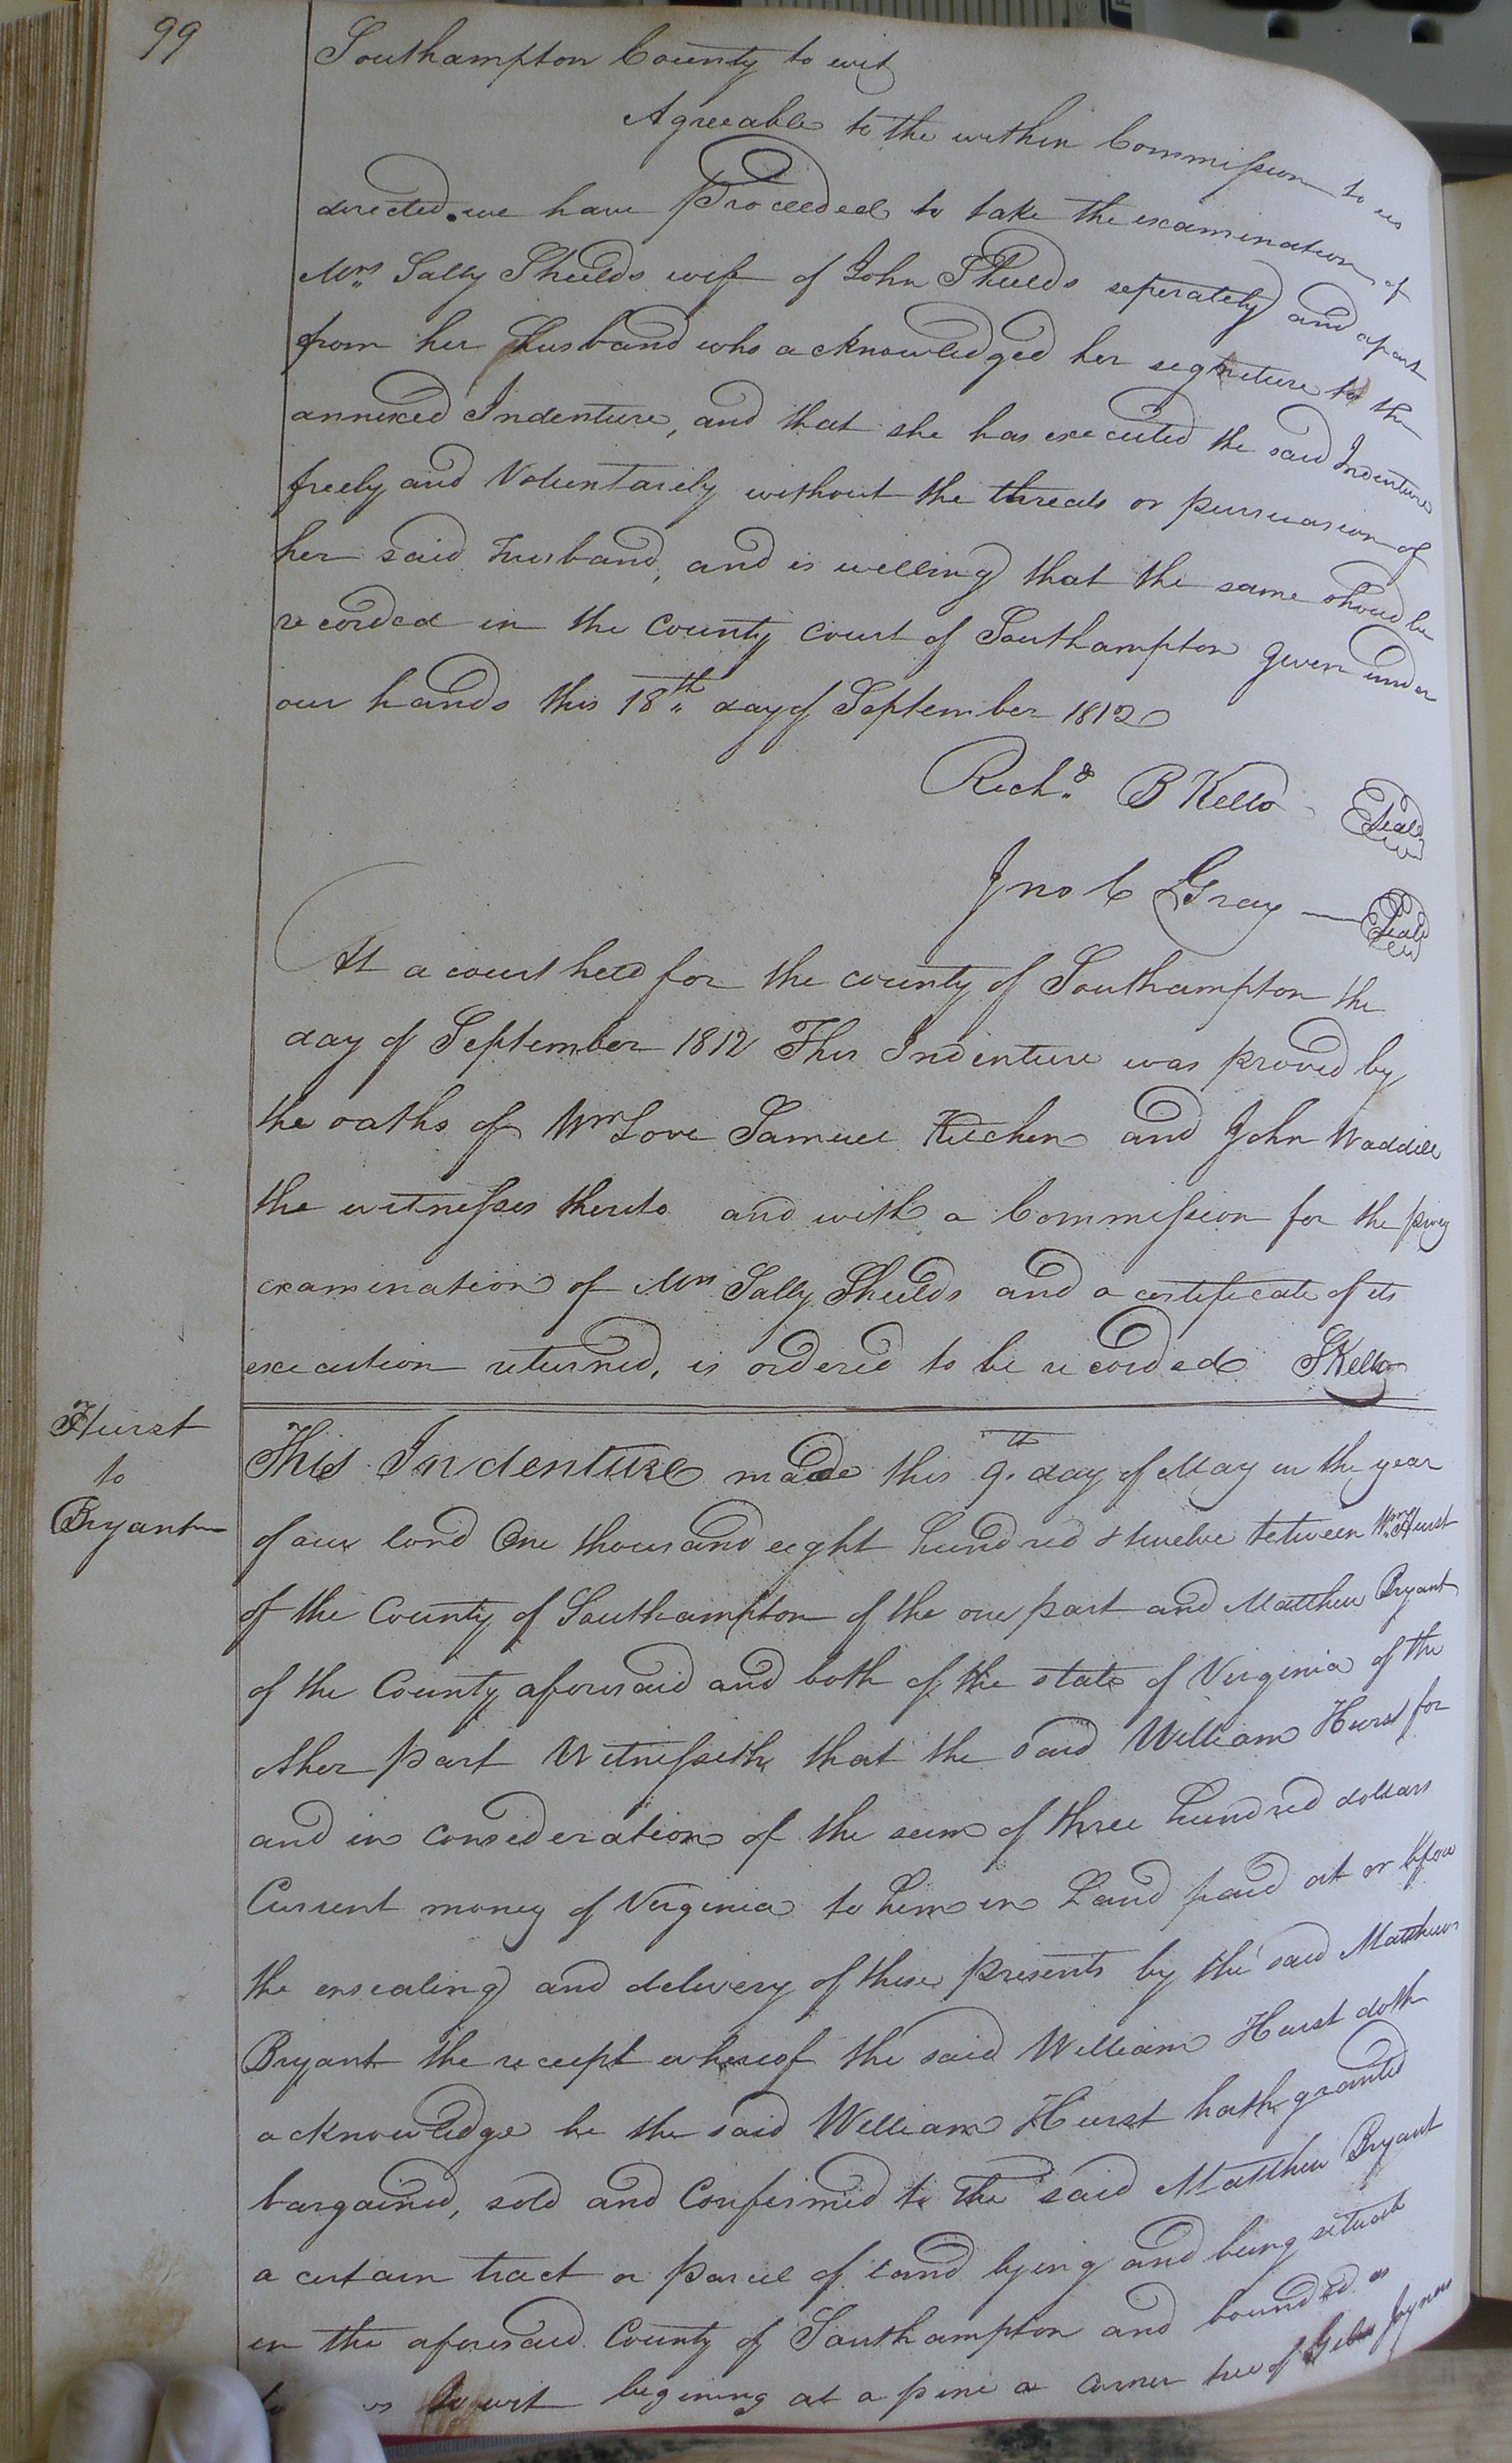 99
Southampton County to wit
Agreeable to the within Commission to us
directed. we have Proceeded to take the examination of
Mrs Sally Shields wife of John Shields seperately and apart
from her Husband who acknowledged her signeture to the
annexed Indenture, and that she has executed the said Indenture
freely and Voluntarily without the threats or pursuasion of
her said husband, and is willing that the same should be
recorded in the County Court of Southampton given under
our hands this 18th day of September 1812
Richd B Kello Seal
Jno C Gray Seal
At a court held for the county of Southampton the
day of September 1812 This Indenture was proved by
the oaths of Wm Love Samuel Kitchen and John Waddill
the witnesses thereto and with a Commission for the privy
examination of Mrs Sally Shields and a certificate of its
execution returned, is ordered to be recorded SKello
Hurst
to
Bryant
This Indenture made this 9th day of May in the year
of our lord One thousand eight hundred & twelve between Wm Hurst
of the County of Southampton of the one part and Matthew Bryant
of the County aforesaid and both of the state of Virginia of the
other part Witnesseth that the said William Hurst for
and in consideration of the sum of three hundred dollars
Current money of Virginia to him in hand paid at or before
the ensealing and delivery of these presents by the said Matthew
Bryant the receipt whereof the said William Hurst doth
acknowledge he the said William Hurst hath granted
bargained, sold and Confirmed to the said Matthew Bryant
a certain tract or parcel of land lying and being situate
in the aforesaid County of Southampton and bounded as
to wit begining at a pine a corner tree of Giles Joyner